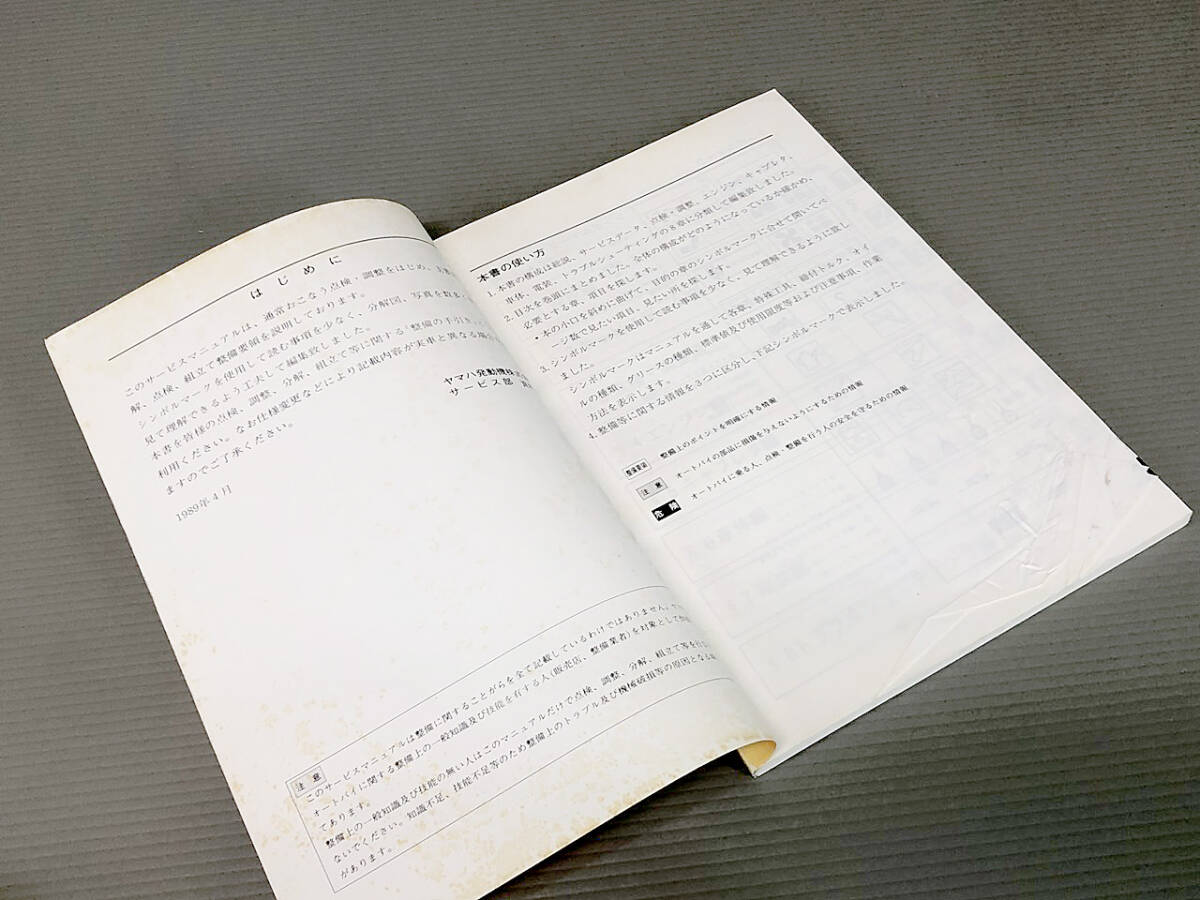 はじめに
このサービスマニュアルは、通常おこなう点検・調整をはじめ、
解、点検、組立て整備要領を説明しております。
シンボルマークを使用して読む事項を少なく、分解図、写真を数多
見て理解できるよう工夫して編集致しました。
本書を皆様の点検、調整、分解、組立て等に関する「整備の手引き
利用ください。なお仕様変更などにより記載内容が実車と異なる場
ますのでご了承ください。
ヤマハ発動機株
サービス部
1989年4月
注意
このサービスマニュアルは整備に関することがらを全て記載しているわけではありません。
オートバイに関する整備上の一般知識及び技能を有する人(販売店、整備業者)を対象として
てあります。
整備上の一般知識及び技能の無い人はこのマニュアルだけで点検、調整、分解、組立て等を行
ないでください。知識不足、技能不足等のため整備上のトラブル及び機械破損等の原因となる
があります。
本書の使い方
1. 本書の構成は総説、サービスデータ、点検・調整、エンジン、キャブレタ、
車体、電装、トラブルシューティングの8章に分類して編集致しました。
2. 目次を巻頭にまとめました。全体の構成がどのようになっているか確かめ、
必要とする章、項目を探します。
・本の小口を斜めに曲げて、目的の章のシンボルマークに合せて開いてペ
ージ数で見たい項目、見たい所を探します。
3. シンボルマークを使用して読む事項を少なく、一見て理解できるように致し
ました。
シンボルマークはマニュアルを通して各章、特殊工具、締付トルク、オイ
ルの種類、グリースの種類、標準値及び使用限度等および注意事項、作業
方法を表示します。
4. 整備等に関する情報を3つに区分し、下記シンボルマークで表示しました。
整備要領 整備上のポイントを明確にする情報
注意 オートバイの部品に損傷を与えないようにするための情報
危険 オートバイに乗る人、点検・整備を行う人の安全を守るための情報